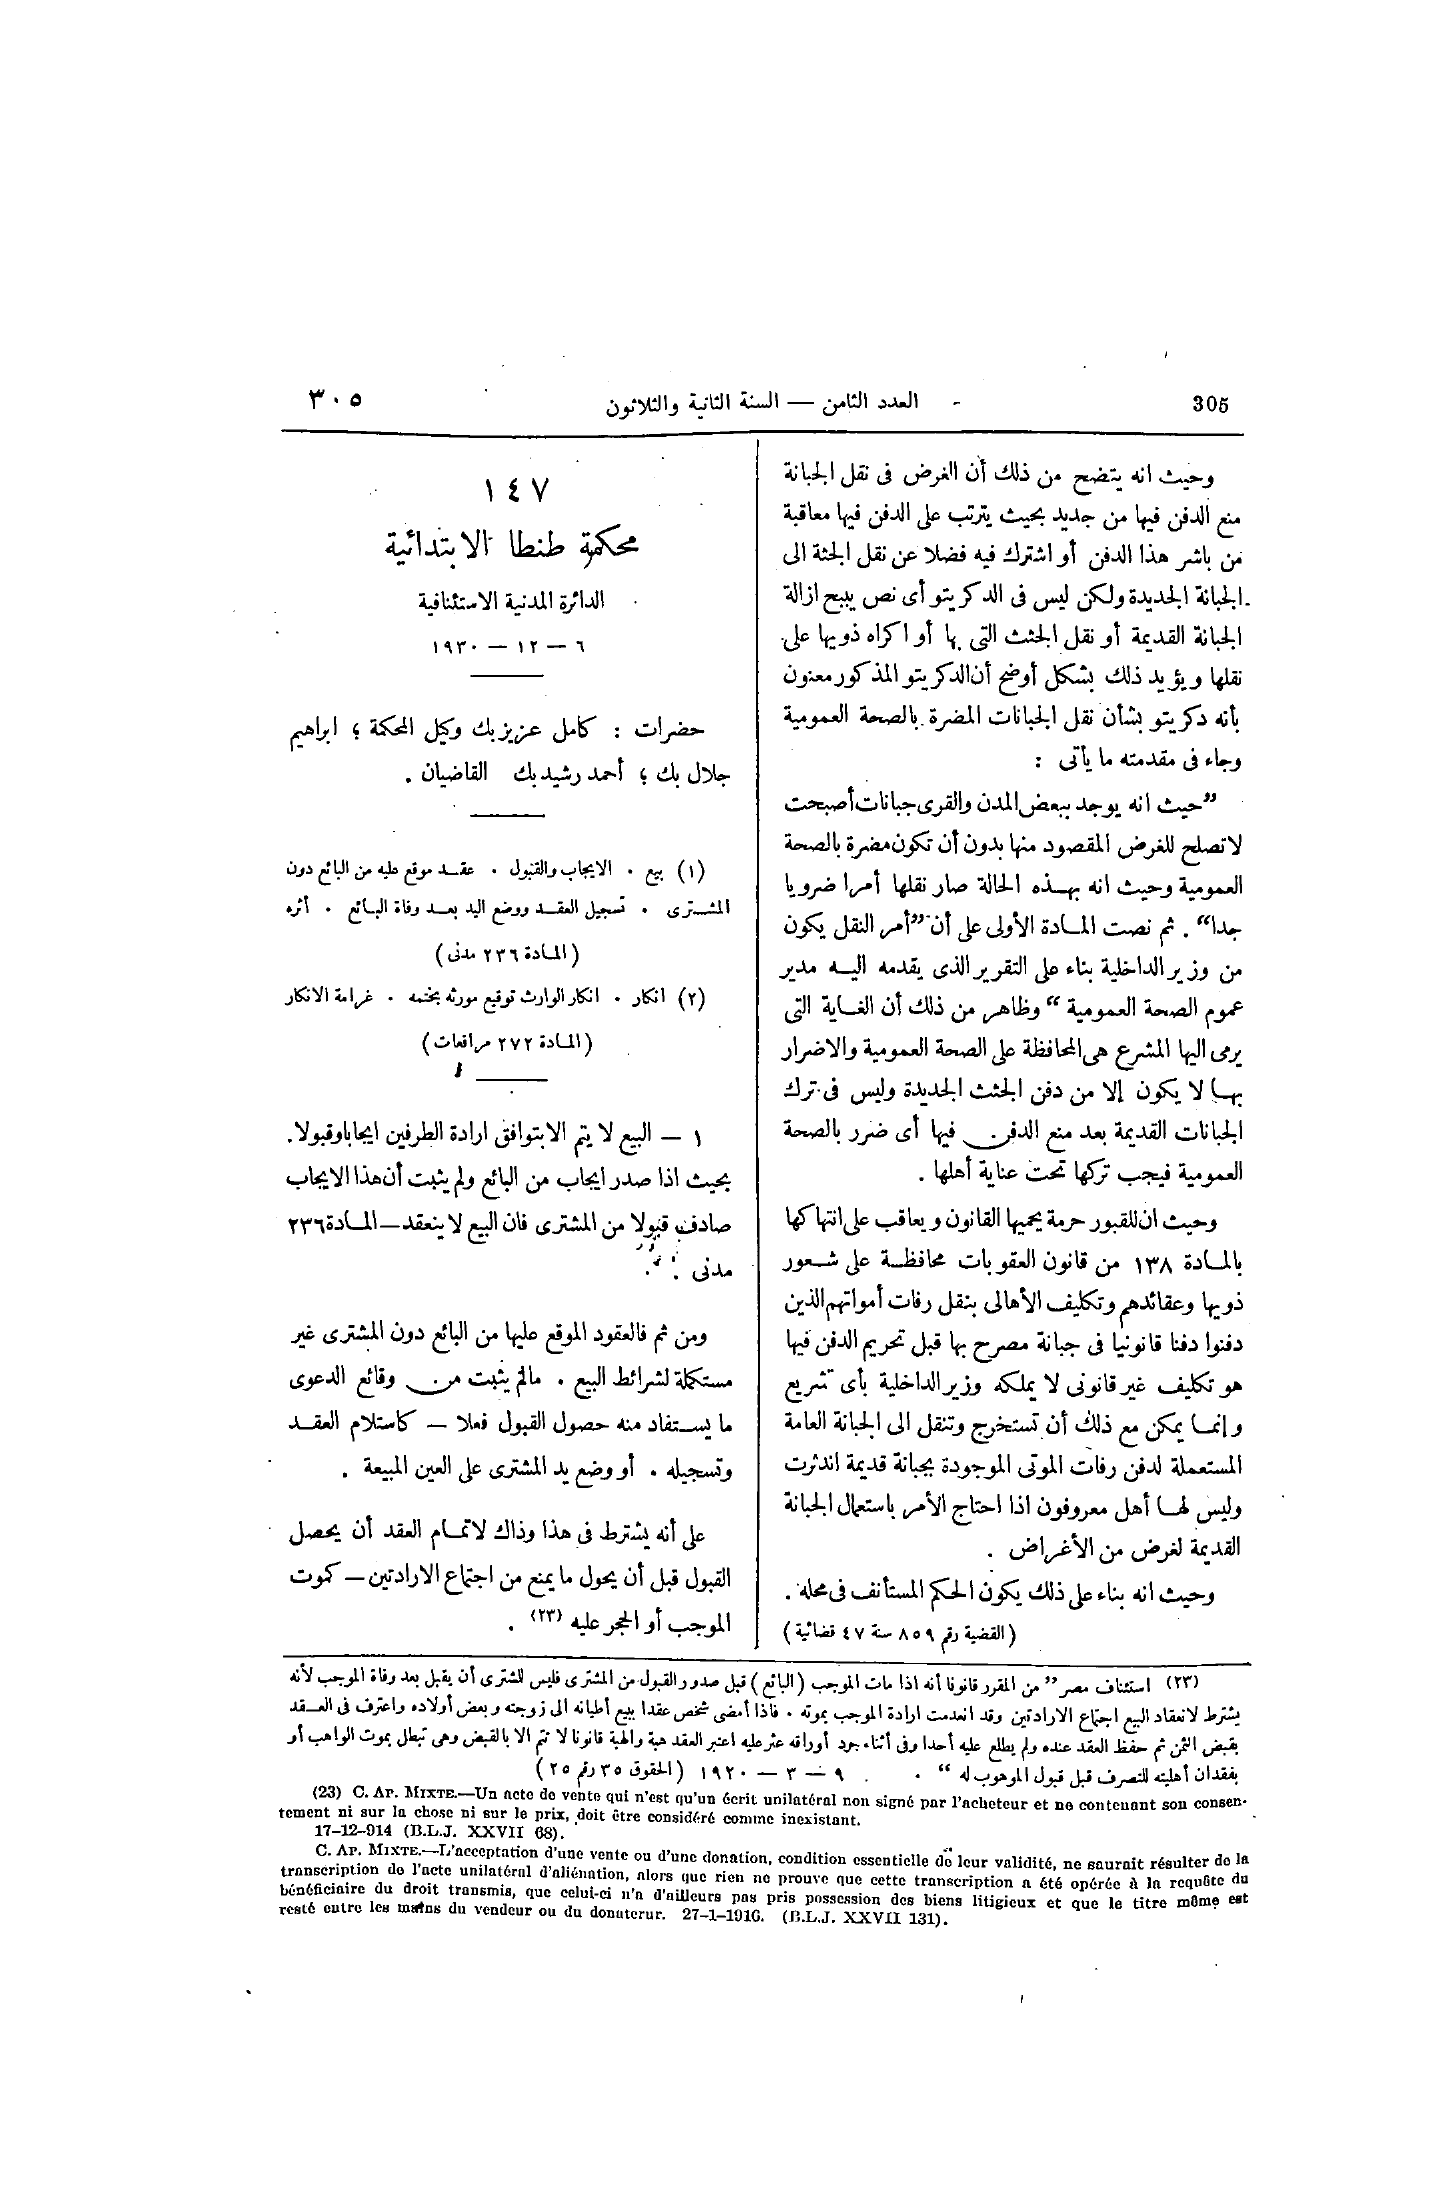 305
العدد الثامن — السنة الثانية والثلاثون
٣٠٥
وحيث انه يتضح من ذلك أن الغرض فى نقل الجبانة
منع الدفن فيها من جديد بحيث يترتب على الدفن فيها معاقبة
من باشر هذا الدفن أو اشترك فيه فضلا عن نقل الجثة الى
الجبانة الجديدة ولكن ليس فى الدكريتو أى نص يبيح ازالة
الجبانة القديمة أو نقل الجثث التى بها أو اكراه ذويها على
نقلها ويؤيد ذلك بشكل أوضح أن الدكريتو المذكور معنون
بأنه دكريتو بشأن نقل الجبانات المضرة بالصحة العمومية
وجاء فى مقدمته ما يأتى :
”حيث انه يوجد ببعض المدن والقرى جبانات أصبحت
لا تصلح للغرض المقصود منها بدون أن تكون مضرة بالصحة
العمومية وحيث انه بهذه الحالة صار نقلها أمرا ضروريا
جدا“ . ثم نصت المادة الأولى على أن ”أمر النقل يكون
من وزير الداخلية بناء على التقرير الذى يقدمه اليه مدير
عموم الصحة العمومية“ وظاهر من ذلك أن الغاية التى
يرمى اليها المشرع هى المحافظة على الصحة العمومية والاضرار
بها لا يكون إلا من دفن الجثث الجديدة وليس فى ترك
الجبانات القديمة بعد منع الدفن فيها أى ضرر بالصحة
العمومية فيجب تركها تحت عناية أهلها .
وحيث ان للقبور حرمة يحميها القانون ويعاقب على انتهاكها
بالمادة ١٣٨ من قانون العقوبات محافظة على شعور
ذويها وعقائدهم وتكليف الأهالى بنقل رفات أمواتهم الذين
دفنوا دفنا قانونيا فى جبانة مصرح بها قبل تحريم الدفن فيها
هو تكليف غير قانونى لا يملكه وزير الداخلية بأى تشريع
وانما يمكن مع ذلك أن تستخرج وتنقل الى الجبانة العامة
المستعملة لدفن رفات الموتى الموجودة بجبانة قديمة اندثرت
وليس لها أهل معروفون اذا احتاج الأمر باستعمال الجبانة
القديمة لغرض من الأغراض .
وحيث انه بناء على ذلك يكون الحكم المستأنف فى محله .
(القضية رقم ٨٥٩ سنة ٤٧ قضائية)
١٤٧
محكمة طنطا الابتدائية
الدائرة المدنية الاستئنافية
٦ — ١٢ — ١٩٣٠
حضرات : كامل عزيز بك وكيل المحكمة ؛ ابراهيم
جلال بك ؛ أحمد رشيد بك القاضيان .
(١) بيع . الايجاب والقبول . عقد موقع عليه من البائع دون
المشترى . تسجيل العقد ووضع اليد بعد وفاة البائع . أثره
(المادة ٢٣٦ مدنى)
(٢) انكار . انكار الوارث توقيع مورثه بختمه . غرامة الانكار
(المادة ٢٧٢ مرافعات)
١ — البيع لا يتم الا بتوافق ارادة الطرفين ايجابا وقبولا.
بحيث اذا صدر ايجاب من البائع ولم يثبت أن هذا الايجاب
صادف قبولا من المشترى فان البيع لا ينعقد — المادة ٢٣٦
مدنى .
ومن ثم فالعقود الموقع عليها من البائع دون المشترى غير
مستكملة لشرائط البيع . مالم يثبت من وقائع الدعوى
ما يستفاد منه حصول القبول فعلا — كاستلام العقد
وتسجيله . أو وضع يد المشترى على العين المبيعة .
على أنه يشترط فى هذا وذاك لاتمام العقد أن يحصل
القبول قبل أن يحول ما يمنع من اجتماع الارادتين — كموت
الموجب أو الحجر عليه (٢٣) .
(٢٣) استئناف مصر ”من المقرر قانونا أنه اذا مات الموجب (البائع) قبل صدور القبول من المشترى فليس للشترى أن يقبل بعد وفاة الموجب لأنه
يشترط لانعقاد البيع اجتماع الارادتين وقد انعدمت ارادة الموجب بموته . فاذا أمضى شخص عقدا ببيع أطيانه الى زوجته وبعض أولاده واعترف فى العقد
بقبض الثمن ثم حفظ العقد عنده ولم يطلع عليه أحدا وفى أثناء جرد أوراقه عثر عليه اعتبر العقد هبة والهبة قانونا لا تتم الا بالقبض وهى تبطل بموت الواهب أو
بفقدان أهليته للتصرف قبل قبول الموهوب له“ . ٩ — ٣ — ١٩٢٠ (الحقوق ٣٥ رقم ٢٥)
(23) C. AP. MIXTE.—Un acte de vente qui n'est qu'un écrit unilatéral non signé par l'acheteur et ne contenant son consen-
tement ni sur la chose ni sur le prix, doit être considéré comme inexistant.
17-12-914 (B.L.J. XXVII 68).
C. AP. MIXTE.—L'acceptation d'une vente ou d'une donation, condition essentielle de leur validité, ne saurait résulter de la
transcription de l'acte unilatéral d'aliénation, alors que rien ne prouve que cette transcription a été opérée à la requête du
bénéficiaire du droit transmis, que celui-ci n'a d'ailleurs pas pris possession des biens litigieux et que le titre même est
resté entre les mains du vendeur ou du donaterur. 27-1-1916. (B.L.J. XXVII 131).